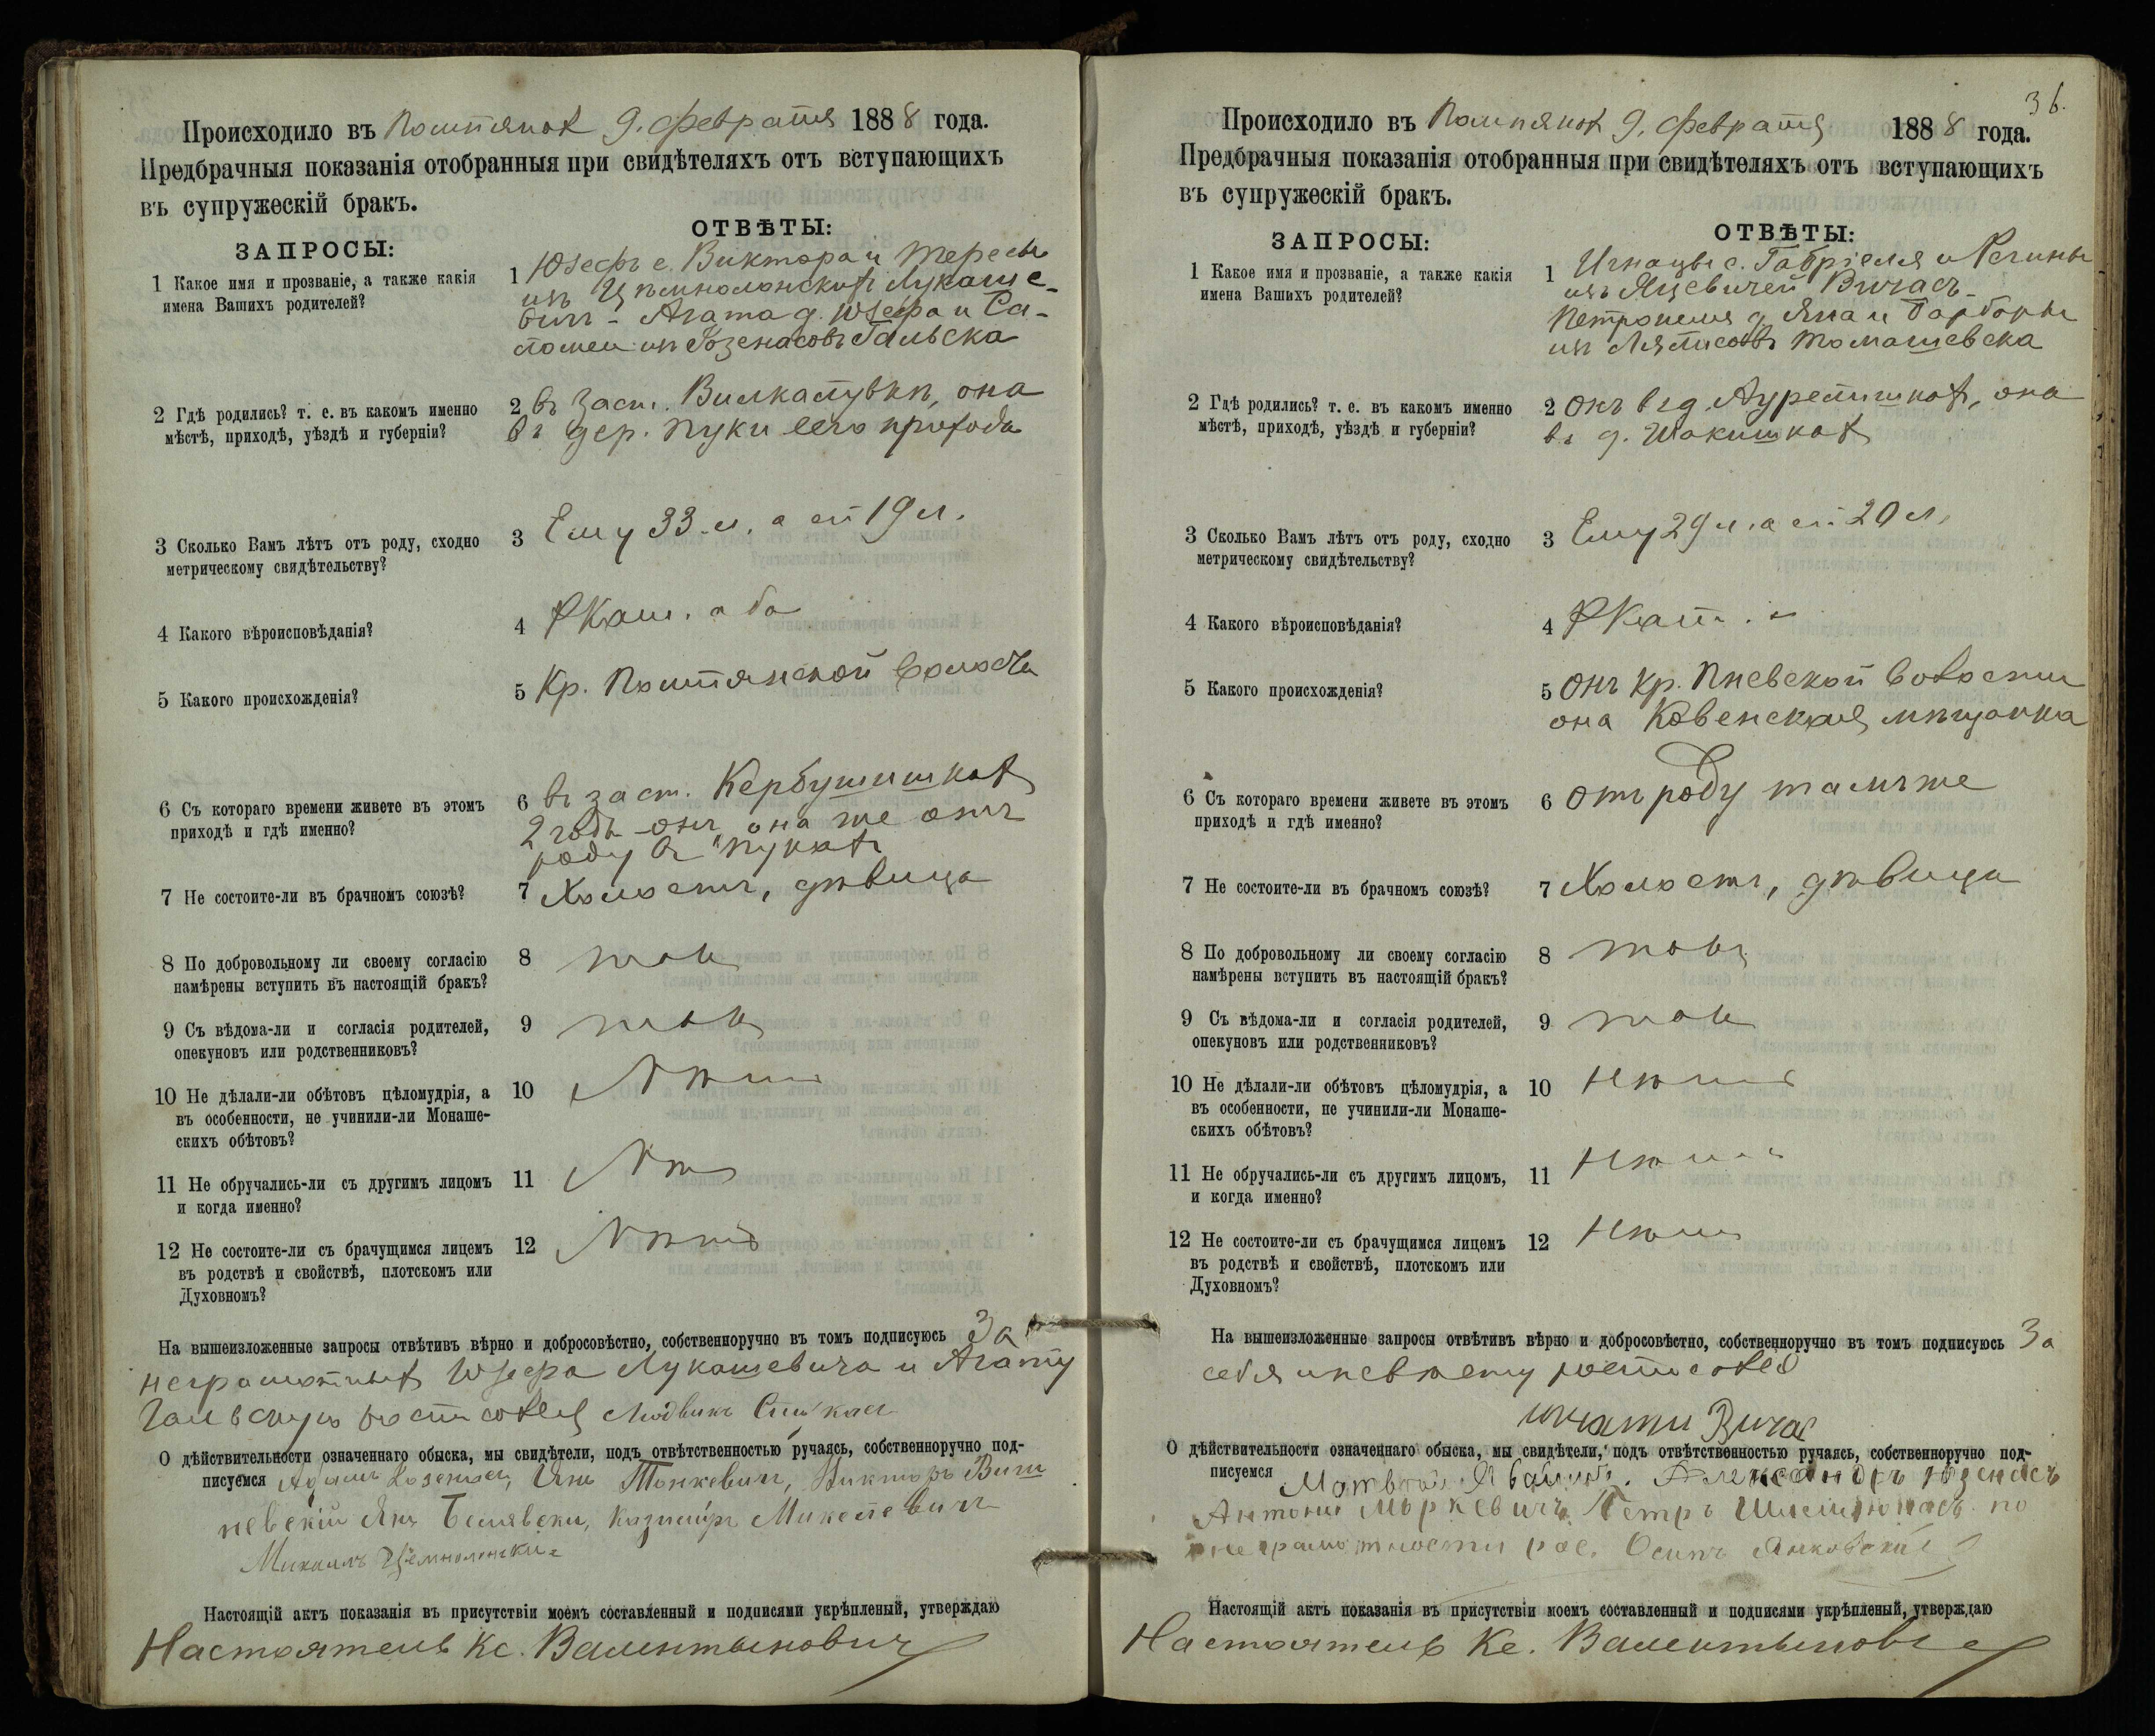 Происходило въ 9. февраля 1888 года.
Предбрачныя показанія отобранныя при свидѣтеляхъ отъ вступающихъ
въ супружескій бракъ.
ЗАПРОСЫ:
ОТВѢТЫ:
1 Какое имя и прозваніе, а также какія
имена Вашихъ родителей?
1 Юзефъ с. Виктора и Тересы
изъ Лукаше-
вичъ - Агата д. Юзефа и Са-
ломеи изъ Гальска
2 Гдѣ родились? т. е. въ какомъ именно
мѣстѣ, приходѣ, уѣздѣ и губерніи?
2 въ заст. она
въ дер. Пуки сего прихода
3 Сколько Вамъ лѣтъ отъ роду, сходно
метрическому свидѣтельству?
3 Ему 33 л. а ей 19 л.
4 Какого вѣроисповѣданія?
4 РКат. оба
5 Какого происхожденія?
5 Кр. волости
6 Съ котораго времени живете въ этомъ
приходѣ и гдѣ именно?
6 въ заст.
2 года онъ, она же отъ
роду въ Пукахъ
7 Не состоите-ли въ брачномъ союзѣ?
7 Холостъ, дѣвица
8 По добровольному ли своему согласію
намѣрены вступить въ настоящій бракъ?
8 такъ
9 Съ вѣдома-ли и согласія родителей,
опекуновъ или родственниковъ?
9 такъ
10 Не дѣлали-ли обѣтовъ цѣломудрія, а
въ особенности, не учинили-ли Монаше-
скихъ обѣтовъ?
10 Нѣтъ
11 Не обручались-ли съ другимъ лицомъ
и когда именно?
11 Нѣтъ
12 Не состоите-ли съ брачущимся лицемъ
въ родствѣ и свойствѣ, плотскомъ или
Духовномъ?
12 Нѣтъ
На вышеизложенные запросы отвѣтивъ вѣрно и добросовѣстно, собственноручно въ томъ подписуюсь За
неграмотныхъ Юзефа Лукашевича и Агату
Гальскую Людвикъ
О дѣйствительности означеннаго обыска, мы свидѣтели, подъ отвѣтственностью ручаясь, собственноручно под-
писуемся Адамъ Янъ Викторъ Виш
невскій Янъ Казиміръ
Михаилъ
Настоящій актъ показанія въ присутствіи моемъ составленный и подписями укрѣпленый, утверждаю
Настоятель Кс. Валентыновичъ
36.
Происходило въ 9. февраля 1888 года.
Предбрачныя показанія отобранныя при свидѣтеляхъ отъ вступающихъ
въ супружескій бракъ.
ЗАПРОСЫ:
ОТВѢТЫ:
1 Какое имя и прозваніе, а также какія
имена Вашихъ родителей?
1 Игнацы с. Габріеля и Регины
изъ Яцевичей Вичасъ
Петронеля д. Яна и Барбары
изъ Томашевска
2 Гдѣ родились? т. е. въ какомъ именно
мѣстѣ, приходѣ, уѣздѣ и губерніи?
2 Онъ въ д. она
въ д. Шакишкахъ
3 Сколько Вамъ лѣтъ отъ роду, сходно
метрическому свидѣтельству?
3 Ему 29 л. а ей 20 л.
4 Какого вѣроисповѣданія?
4 РКат.
5 Какого происхожденія?
5 Онъ кр. Пневской волости
она Ковенская мѣщанка
6 Съ котораго времени живете въ этомъ
приходѣ и гдѣ именно?
6 Отъ роду тамъ же
7 Не состоите-ли въ брачномъ союзѣ?
7 Холостъ, дѣвица
8 По добровольному ли своему согласію
намѣрены вступить въ настоящій бракъ?
8 такъ
9 Съ вѣдома-ли и согласія родителей,
опекуновъ или родственниковъ?
9 такъ
10 Не дѣлали-ли обѣтовъ цѣломудрія, а
въ особенности, не учинили-ли Монаше-
скихъ обѣтовъ?
10 Нѣтъ
11 Не обручались-ли съ другимъ лицомъ,
и когда именно?
11 Нѣтъ
12 Не состоите-ли съ брачущимся лицемъ
въ родствѣ и свойствѣ, плотскомъ или
Духовномъ?
12 Нѣтъ
На вышеизложенные запросы отвѣтивъ вѣрно и добросовѣстно, собственноручно въ томъ подписуюсь За
себя и невѣсту
Вичас
О дѣйствительности означеннаго обыска, мы свидѣтели, подъ отвѣтственностью ручаясь, собственноручно под-
писуемся Александръ
Антони Петръ по
неграмотности рос. Осипъ Янковскій
Настоящій актъ показанія въ присутствіи моемъ составленный и подписями укрѣпленый, утверждаю
Настоятель Кс. Валентыновичъ